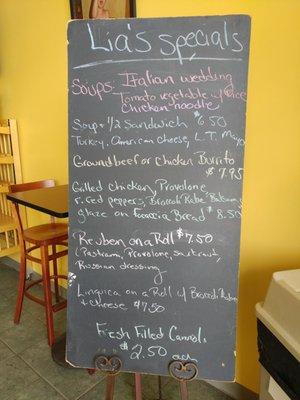 Lia's specials
Soups: Italian wedding
Tomato vegetable w/ Rice
Chicken noodle
Soup + 1/2 Sandwich $6.50
Turkey, American cheese, L.T. Mayo
Ground beef or chicken Burrito
$7.95
Grilled chicken, Provolone,
r. red peppers, Broccoli Rabe, Balsamic
glaze on Foccacia Bread $8.50
Reuben on a Roll $7.50
(Pastrami, Provolone, saurkraut,
Russian dressing
Linguica on a Roll w/ Broccoli Rabe
+ cheese $7.50
Fresh Filled Cannoli
$2.50 each